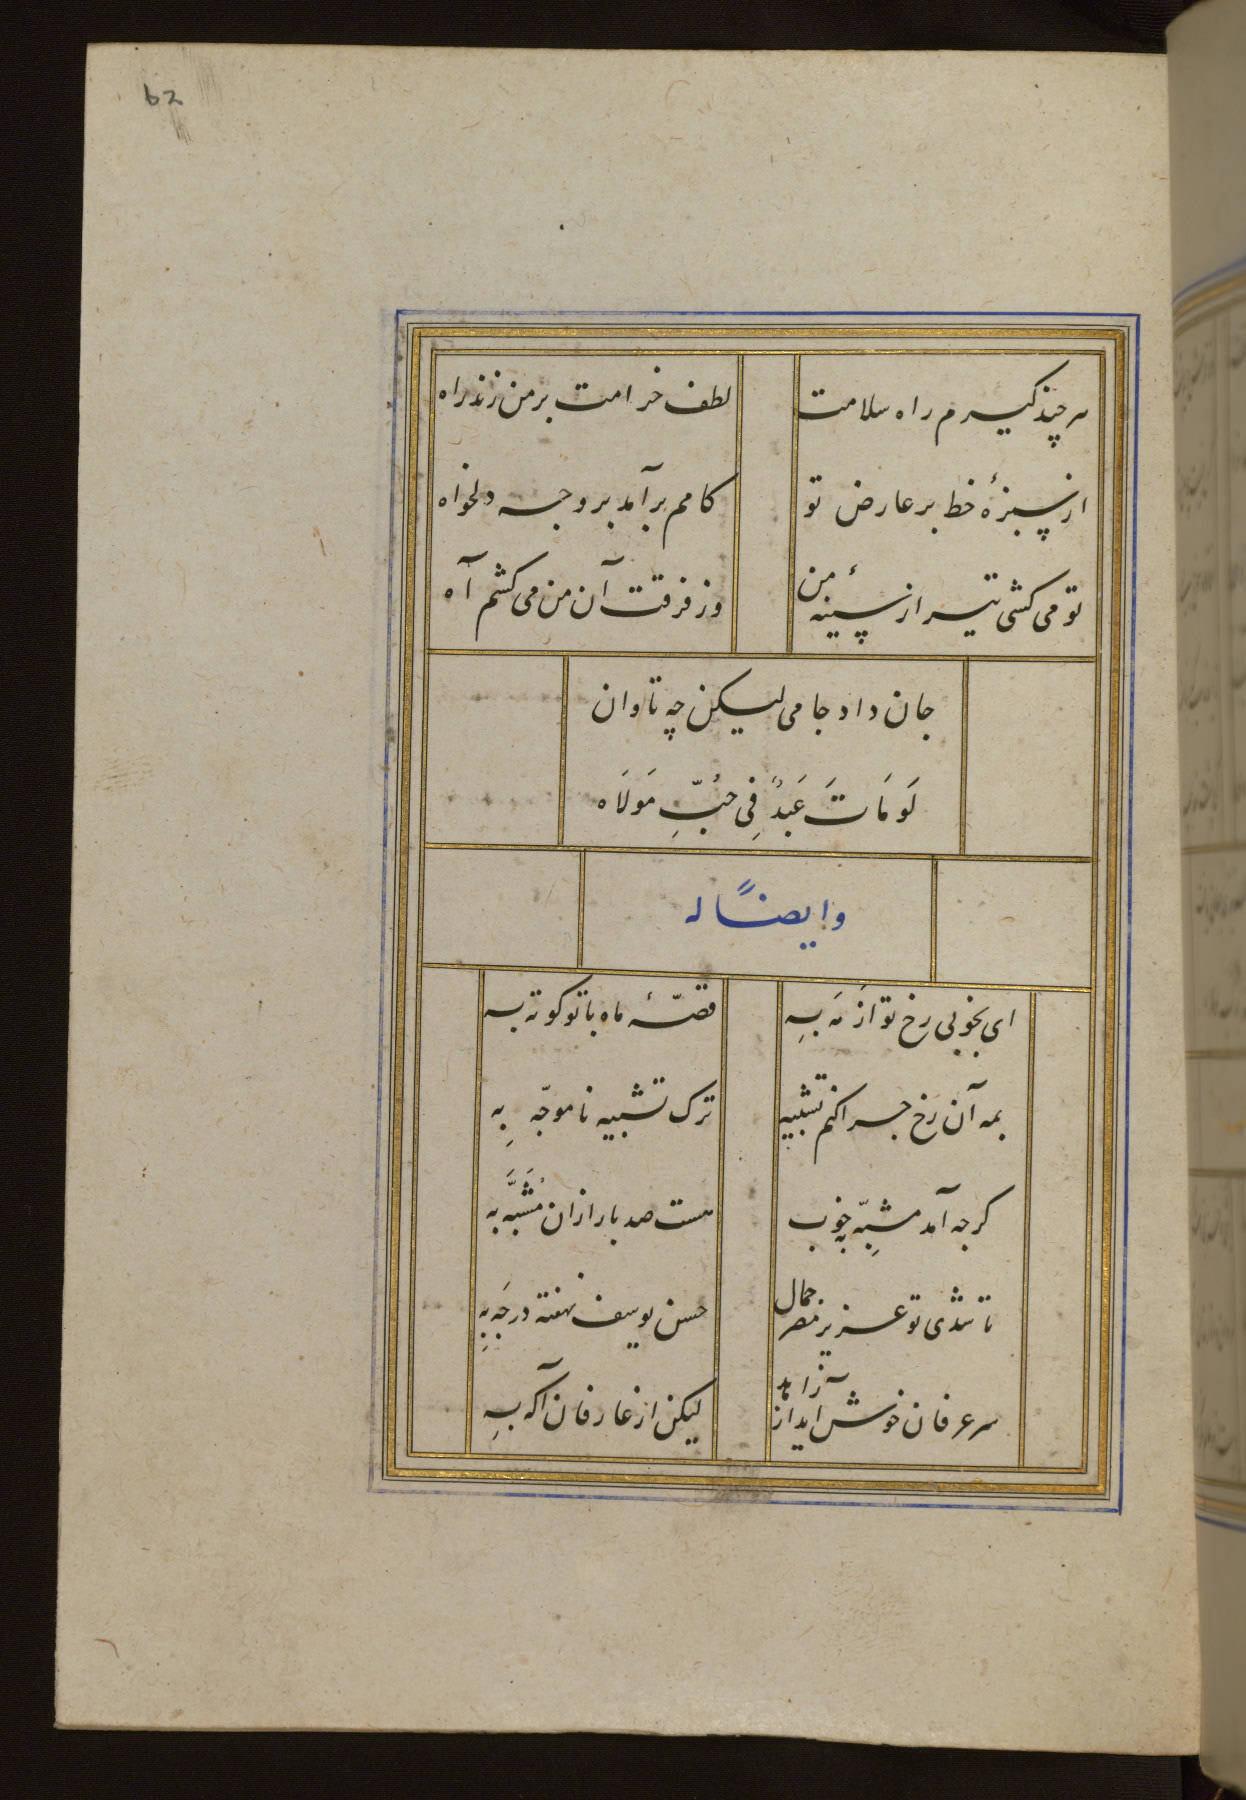 62
هر چند کیرم راه سلامت
لطف خرامت بر من زند راه
از سبزهٔ خط بر عارض تو
کامم برآمد بر وجه دلخواه
تو می کشی تیر از سینهٔ من
وز فرقت آن من می کشم آه
جان داد جامی لیکن چه تاوان
لَو مَاتَ عَبدٌ فِی حُبِّ مَولَاه
وایضًا له
ای بخوبی رخ تو از مَه بِه
قصّهٔ ماه با تو کوته به
بمه آن رخ چرا کنم تشبیه
ترک تشبیه ناموجّه بِه
کرچه آمد مشبِّه به خوب
هست صد بار ازان مُشَبَّه به
تا شدی تو عزیز مصر جمال
حسن یوسف نهفته در چَه بِه
هر عرفان خوش آید از زاهد
لیکن از عارفان آکه بِه